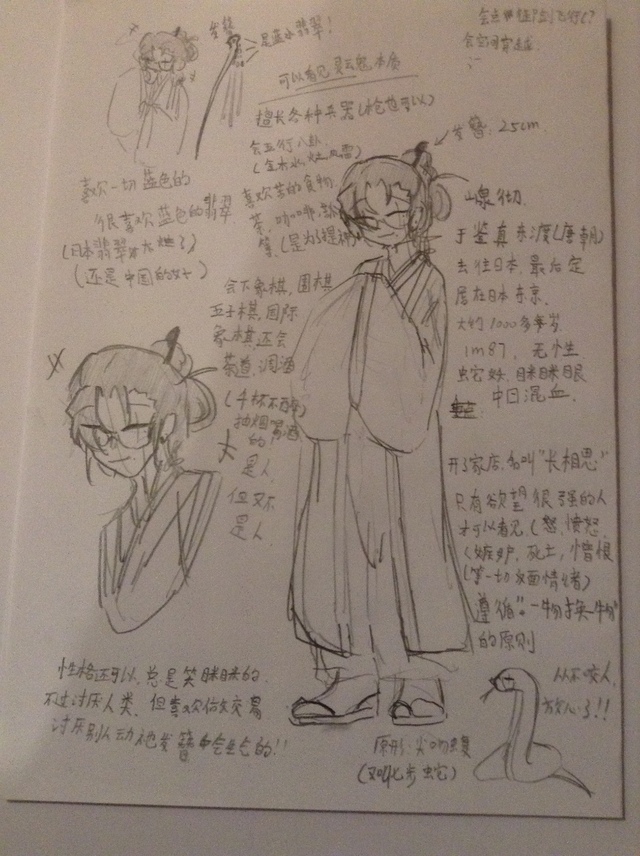 发簪
是蓝水翡翠!
可以看见灵魂本质
擅长各种兵器(枪也可以)
会五行八卦
喜欢苦的食物
茶,咖啡
发簪:25cm
喜欢一切蓝色的
很喜欢蓝色的翡翠
(还是中国的好)
会下象棋,围棋
五子棋,国际
象棋还会
茶道,调酒
(千杯不醉)
抽烟喝酒
的
是人
但又不
是人
山泉彻
于鉴真东渡(唐朝)
去往日本,最后定
居在日本东京.
大约1000多岁
1m87, 无性
蛇妖,眯眯眼
中日混血.
开了家店,名叫“长相思”
只有欲望很强的人
才可以看见(怒,愤怒,
嫉妒,死亡,憎恨
等一切负面情绪)
遵循“一物换一物”
的原则
从不咬人,
放心了!!
原形:尖吻蝮
(又叫七步蛇)
性格还可以,总是笑眯眯的.
不过讨厌人类,但喜欢做交易
讨厌别人动他发簪